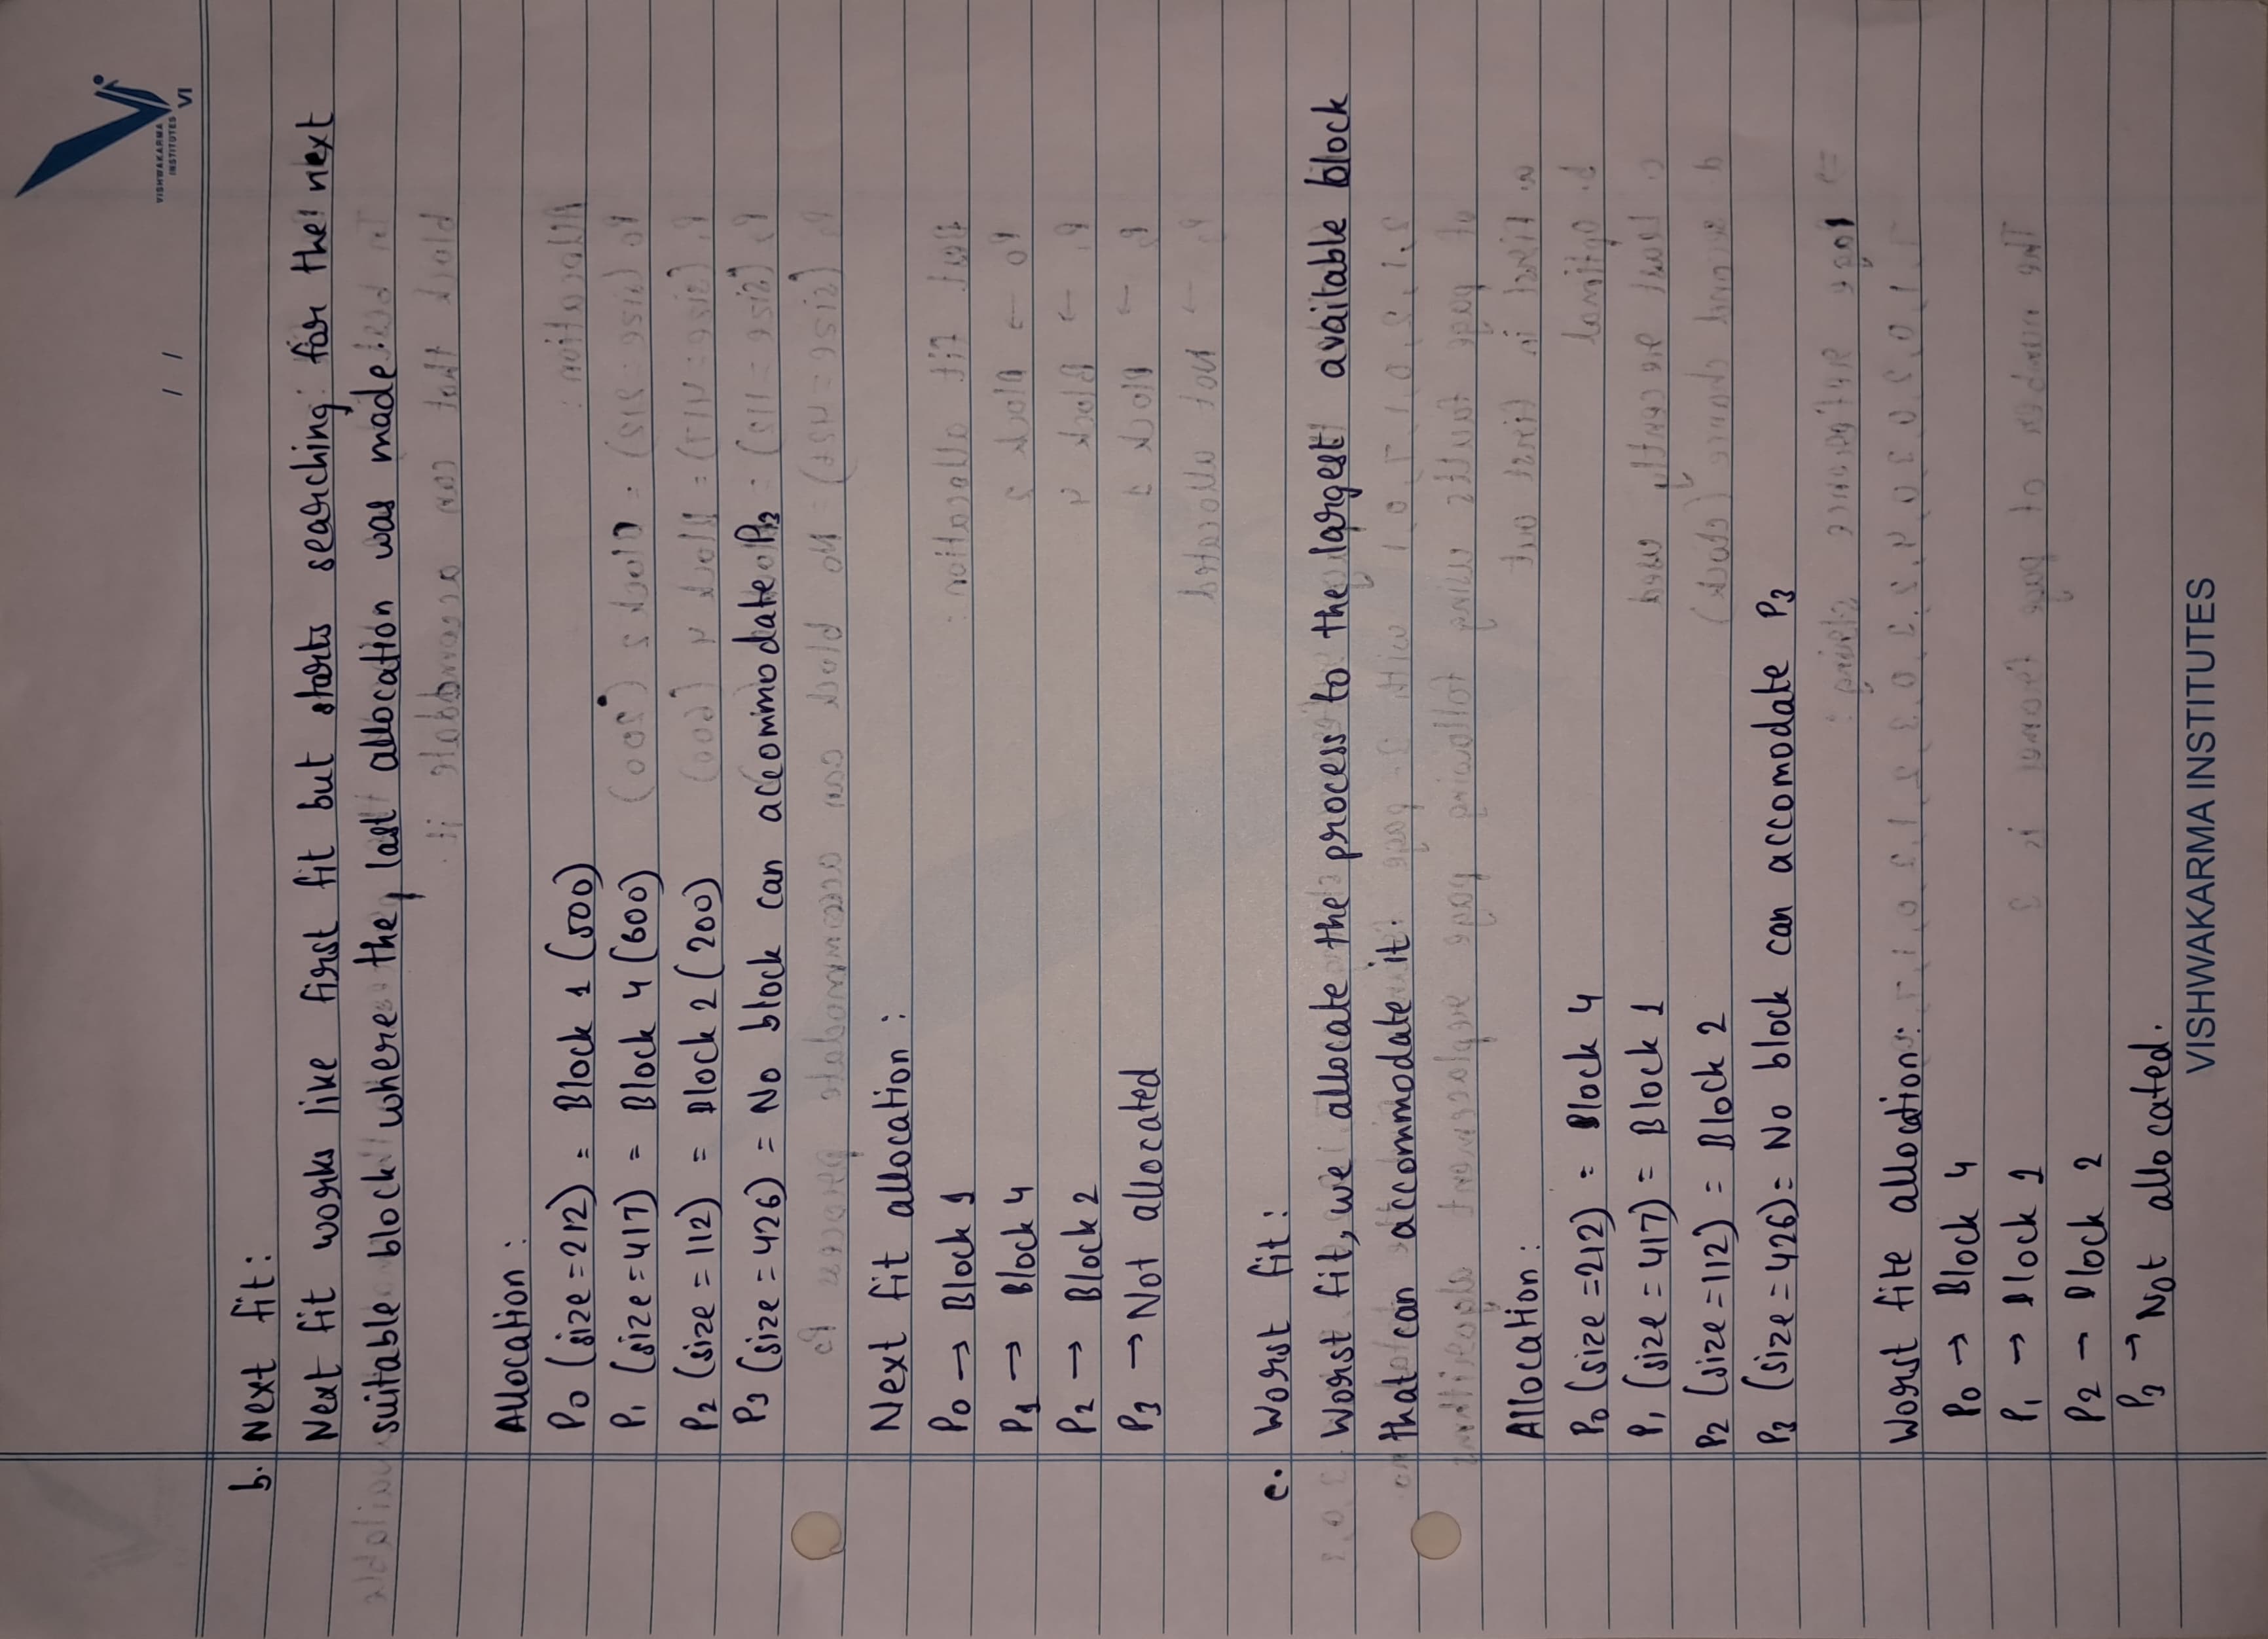 / /
VISHWAKARMA
INSTITUTES
VI
b. Next fit:
Next fit works like first fit but starts searching for the next
suitable block where the, last allocation was made.
Allocation :
P0 (size=212) = Block 1 (500)
P1 (size=417) = Block 4 (600)
P2 (size = 112) = Block 2 (200)
P3 (size = 426) = No block can accommodate P3
Next fit allocation :
P0 → Block 1
P1 → Block 4
P2 → Block 2
P3 → Not allocated
c. Worst fit:
Worst fit, we allocate the process to the largest available block
that can accommodate it.
Allocation :
P0 (size =212) = Block 4
P1 (size = 417) = Block 1
P2 (size =112) = Block 2
P3 (size = 426)= No block can accomodate P3
Worst fite allocation:
P0 → Block 4
P1 → Block 1
P2 → Block 2
P3 → Not allocated.
VISHWAKARMA INSTITUTES